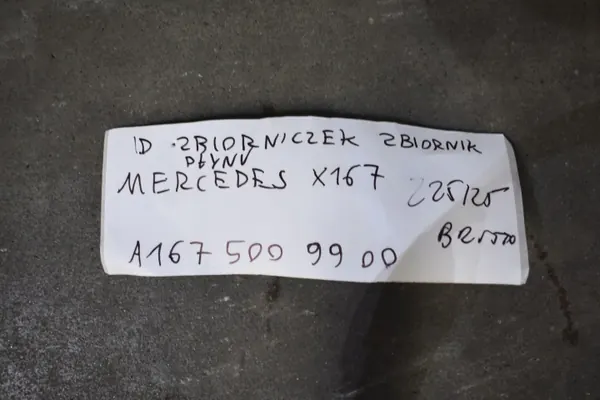 ID ZBIORNICZEK ZBIORNIK
PŁYNU
MERCEDES X167 225/25
A167 500 99 00